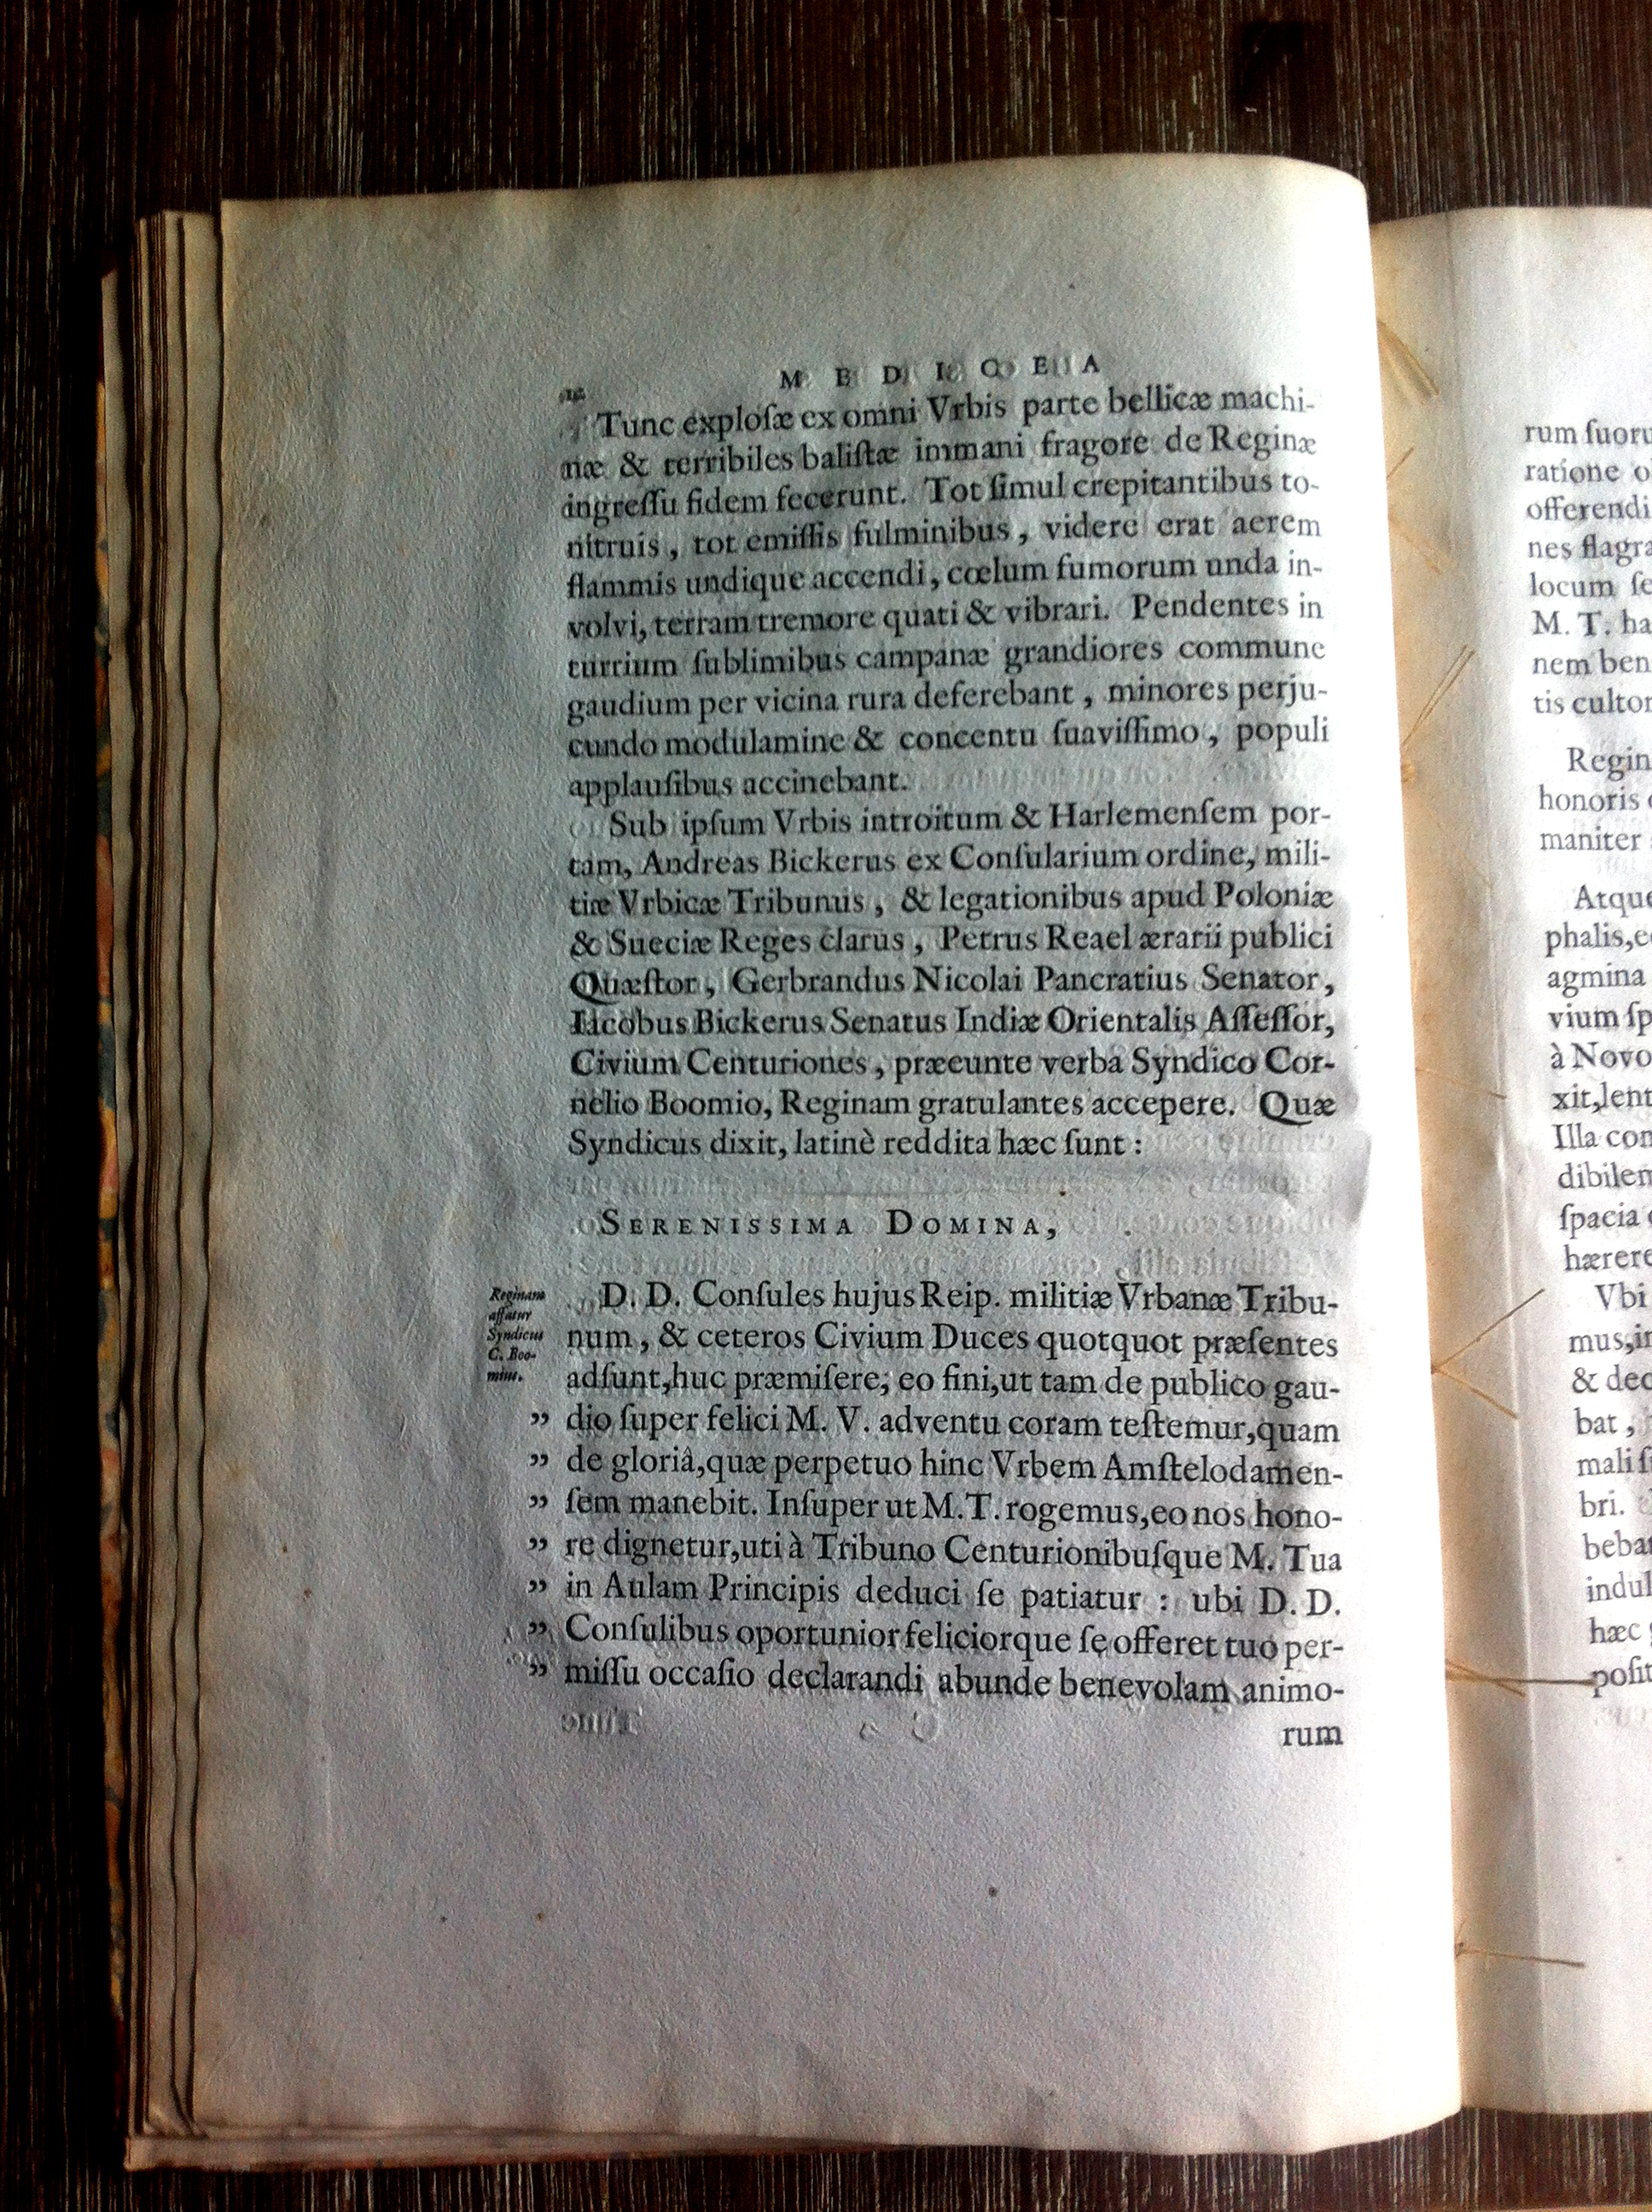 MEDICEA
Tunc exploſæ ex omni Vrbis parte bellicæ machi-
næ & terribiles baliſtæ immani fragore de Reginæ
ingreſſu fidem fecerunt. Tot ſimul crepitantibus to-
nitruis, tot emiſſis fulminibus, videre erat aerem
flammis undique accendi, cœlum fumorum unda in-
volvi, terram tremore quati & vibrari. Pendentes in
turrium ſublimibus campanæ grandiores commune
gaudium per vicina rura deferebant, minores perju-
cundo modulamine & concentu ſuaviſſimo, populi
applauſibus accinebant.
Sub ipſum Vrbis introitum & Harlemenſem por-
tam, Andreas Bickerus ex Conſularium ordine, mili-
tiæ Vrbicæ Tribunus, & legationibus apud Poloniæ
& Sueciæ Reges clarus, Petrus Reael ærarii publici
Quæſtor, Gerbrandus Nicolai Pancratius Senator,
Iacobus Bickerus Senatus Indiæ Orientalis Aſſeſſor,
Civium Centuriones, præeunte verba Syndico Cor-
nelio Boomio, Reginam gratulantes accepere. Quæ
Syndicus dixit, latinè reddita hæc ſunt:
SERENISSIMA DOMINA,
Reginam
affatur
Syndicus
C. Boo-
mius.
D. D. Conſules hujus Reip. militiæ Vrbanæ Tribu-
num, & ceteros Civium Duces quotquot præſentes
adſunt, huc præmiſere, eo fini, ut tam de publico gau-
” dio ſuper felici M. V. adventu coram teſtemur, quam
” de gloriâ, quæ perpetuo hinc Vrbem Amſtelodamen-
” ſem manebit. Inſuper ut M. T. rogemus, eo nos hono-
” re dignetur, uti à Tribuno Centurionibuſque M. Tua
” in Aulam Principis deduci ſe patiatur: ubi D. D.
” Conſulibus oportunior feliciorque ſe offeret tuo per-
” miſſu occaſio declarandi abunde benevolam animo-
rum
rum ſuoru
ratione o
offerendi
nes flagra
locum ſe
M. T. ha
nem ben
tis cultor
Regin
honoris
maniter
Atque
phalis, e
agmina
vium ſp
à Novo
xit, lent
Illa con
dibilem
ſpacia
hærere
Vbi
mus, in
& dec
bat,
mali ſ
bri.
beba
indul
hæc
poſit